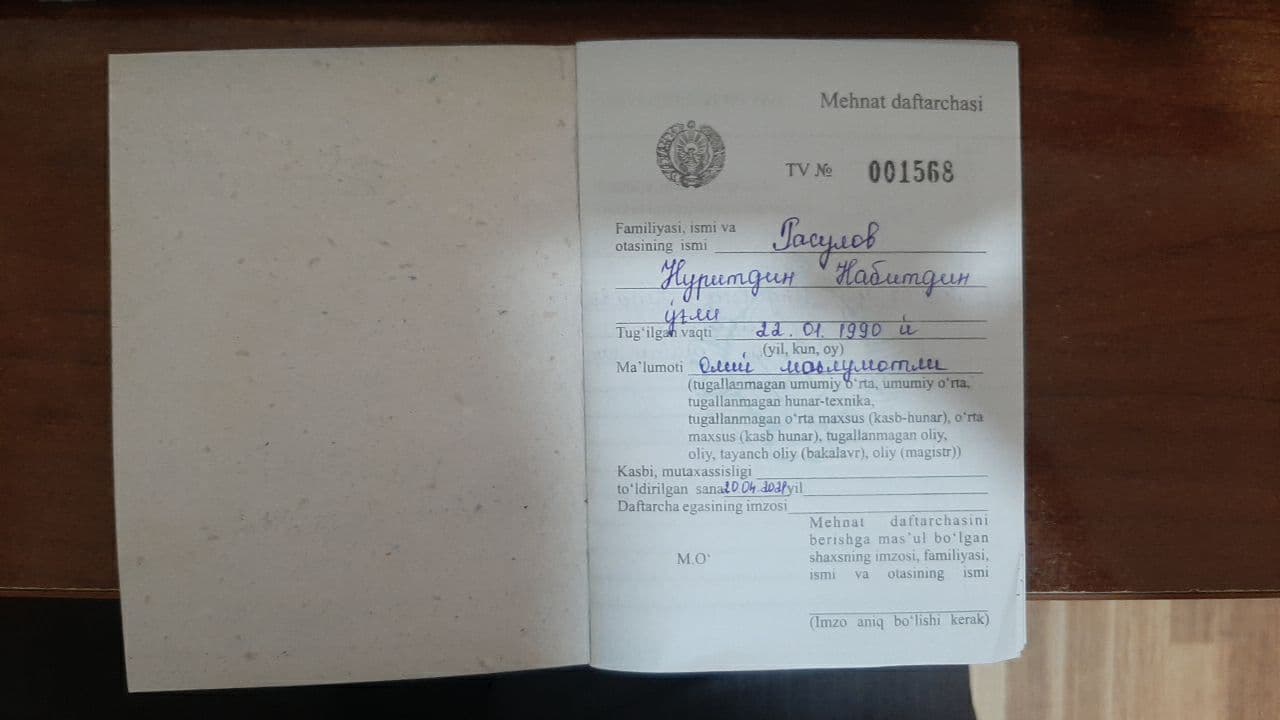 Mehnat daftarchasi
TV № 001568
Familiyasi, ismi va
otasining ismi Расулов
Нуритдин Набитдин
ўғли
Tug‘ilgan vaqti 22.01.1990 й
(yil, kun, oy)
Ma’lumoti Олий маълумотли
(tugallanmagan umumiy o‘rta, umumiy o‘rta,
tugallanmagan hunar-texnika,
tugallanmagan o‘rta maxsus (kasb-hunar), o‘rta
maxsus (kasb hunar), tugallanmagan oliy,
oliy, tayanch oliy (bakalavr), oliy (magistr))
Kasbi, mutaxassisligi
to‘ldirilgan sana 20.04.2021 yil
Daftarcha egasining imzosi
Mehnat daftarchasini
berishga mas’ul bo‘lgan
shaxsning imzosi, familiyasi,
ismi va otasining ismi
M.O‘
(Imzo aniq bo‘lishi kerak)